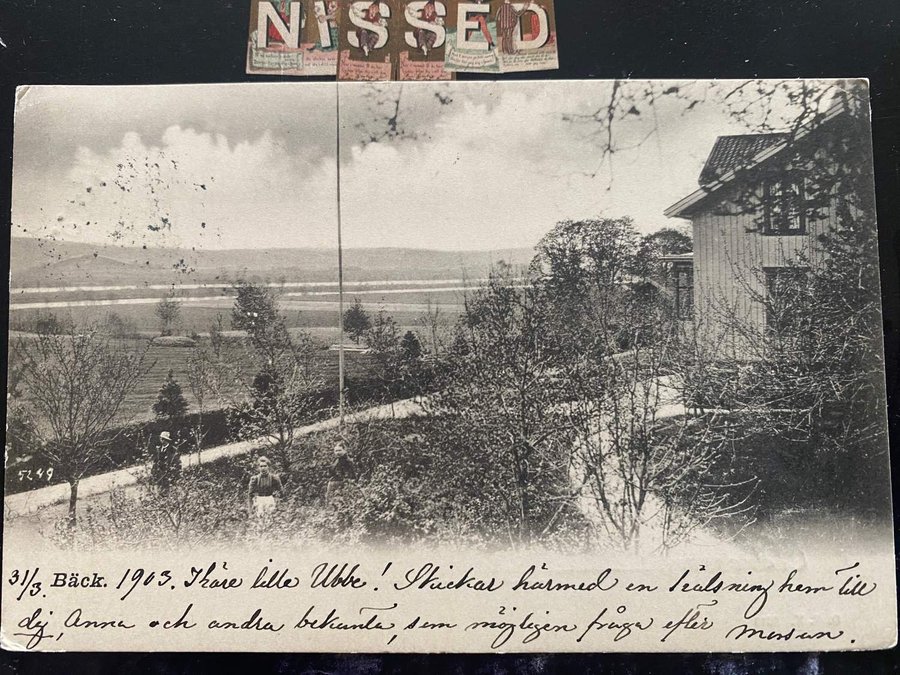 NISSED
5249
31/3. Bäck. 1903. Käre lille Ubbe! Skickar härmed en hälsning hem till
dig, Anna och andra bekanta, som möjligen fråga efter